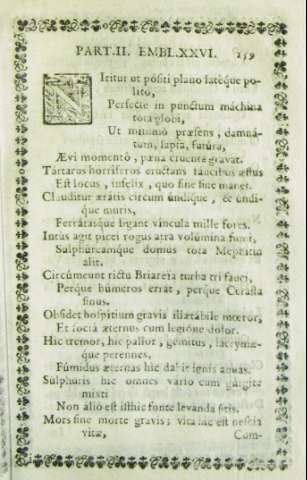 PART. II. EMBL. XXVI. 259
NItitur ut pósiti plano latéque po-
lito,
Perfecte in punctum máchina
tota globi,
Ut minimò præsens, damná-
tum, lapsa, futúra,
Ævi momentò, pæna cruente gravat.
Tártarus horríferos eructans faucibus æstus
Est locus, infelix, quo sine fine manet.
Clauditur ærátis circum úndique, & úndi-
que muris,
Ferrátasque ligant vincula mille fores.
Intùs agit picei rogus atra volúmina fumi,
Sulphureámque domus tota Mephitim
alit.
Circúmeunt rictu Briareïa turba tri fauci,
Perque húmeros errat, perque Cerasta
sinus.
Obsidet hospitium gravis illætábile mœror,
Et sociâ æternus cum legióne dolor.
Hic tremor, hic pallor, gémitus, lacrymæ-
que perennes,
Fúmidus æternas hic dabit ignis aquas.
Sulphuris hic omnes vario cum gúrgite
misti
Non alió est isthic fonte levanda sitis.
Mors sine morte gravis; vita ine est nescia
vitæ,
Com-